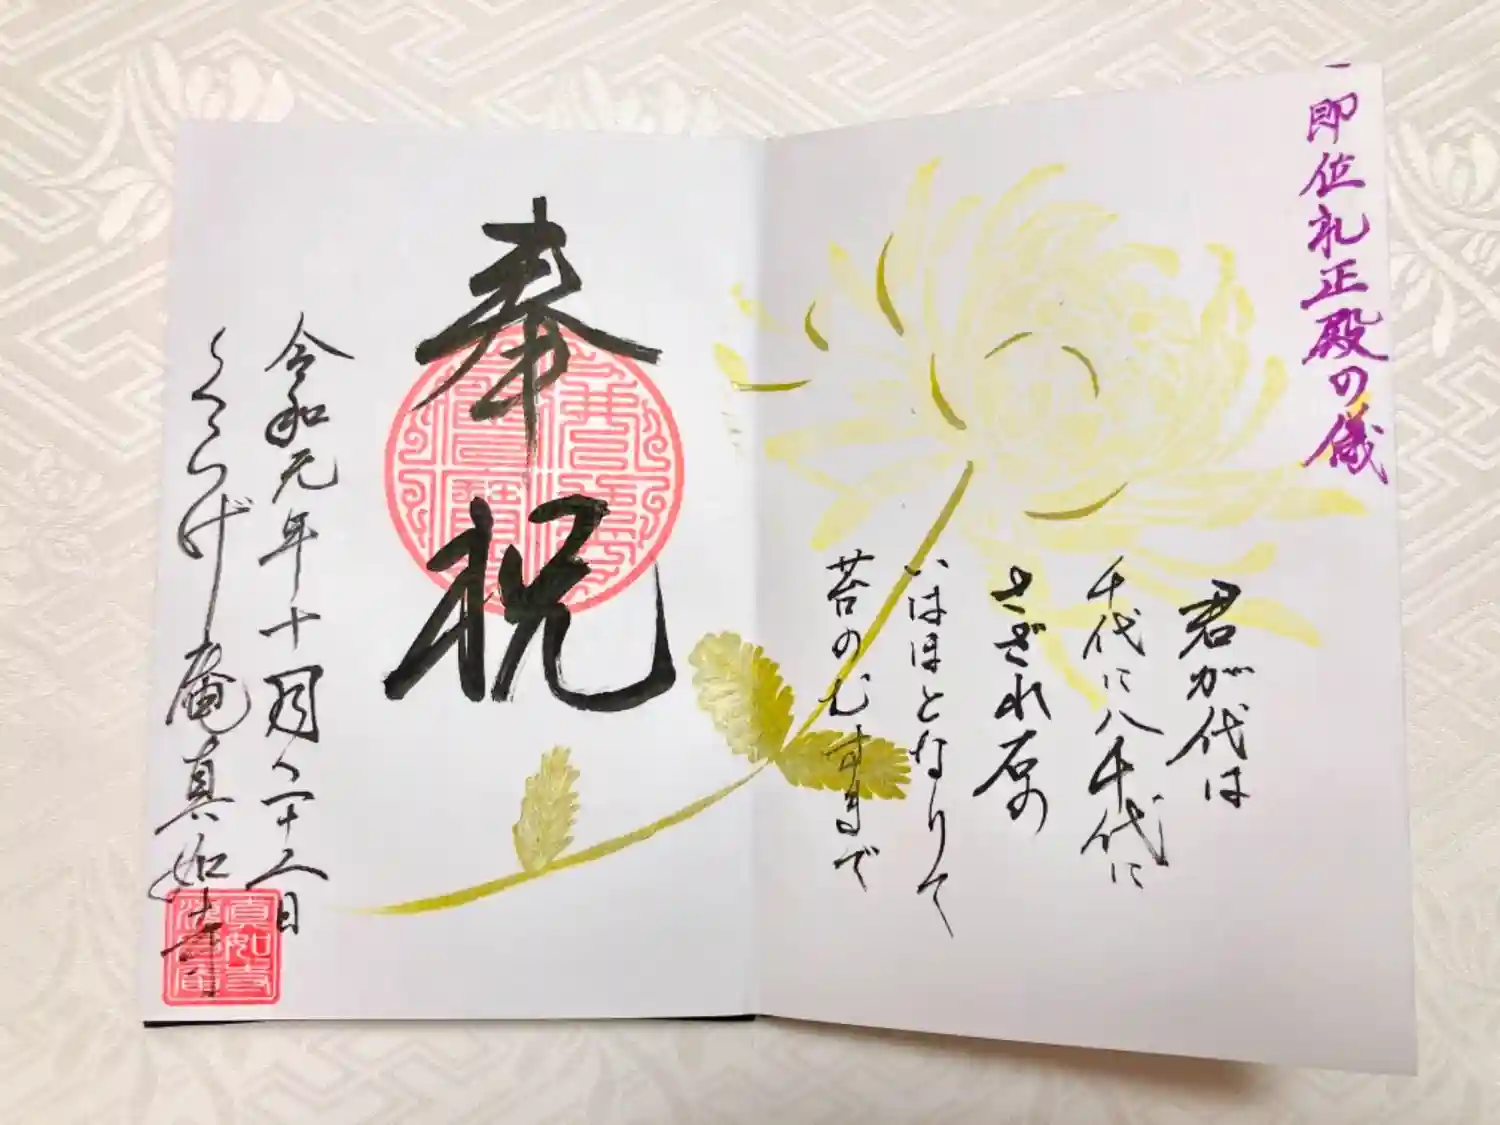 即位礼正殿の儀
君が代は
千代に八千代に
さざれ石の
いはほとなりて
苔のむすまで
奉祝
令和元年十月二十二日
庵真如寺
真如寺